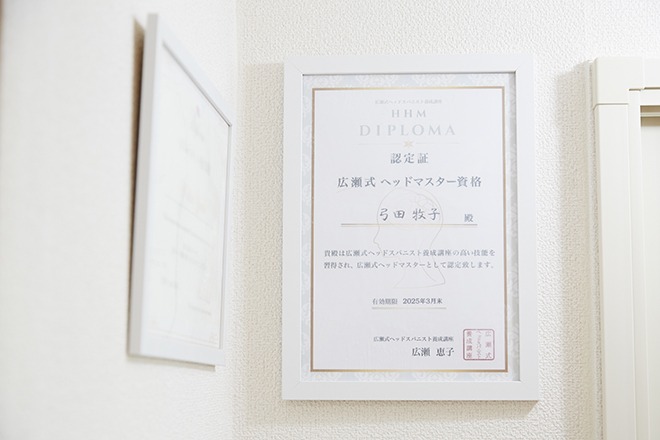 広瀬式ヘッドスパニスト養成講座
HHM
DIPLOMA
認定証
広瀬式 ヘッドマスター資格
弓田 牧子 殿
貴殿は広瀬式ヘッドスパニスト養成講座の高い技能を
習得され、広瀬式ヘッドマスターとして認定致します。
有効期限 2025年3月末
広瀬式ヘッドスパニスト養成講座
広瀬 恵子
広瀬式
養成講座